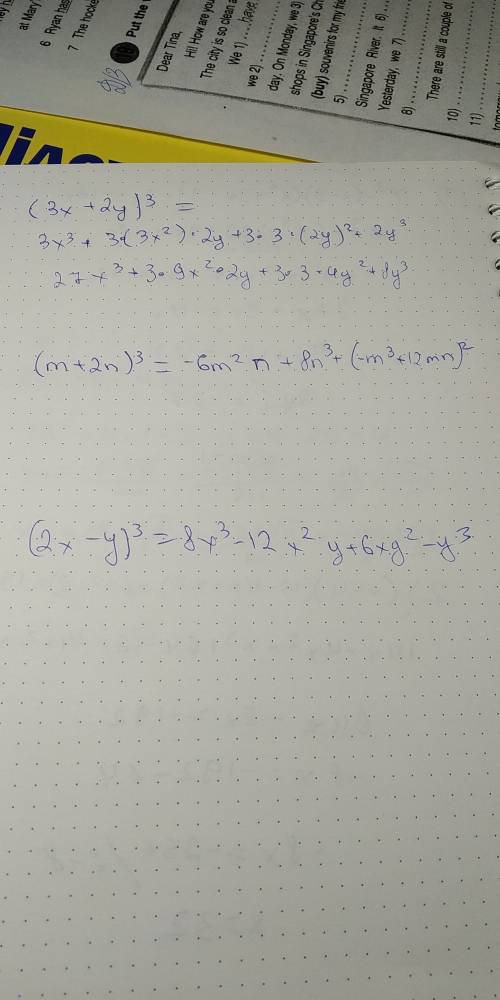 at Mary
6 Ryan has
7 The hooke
10 Put the
Dear Tina,
Hi! How are you
The city is so clean a
We 1) ...have
we 2) ..........
day. On Monday, we 3)
shops in Singapore's Ch
(buy) souvenirs for my frie
5) ..........
Singapore River. It 6) ....
Yesterday, we 7) ..........
8) ..........
There are still a couple of
10) ..........
11) ..........
(3x + 2y)³ =
3x³ + 3·(3x²)·2y + 3·3·(2y)² + 2y³
27x³ + 3·9x²·2y + 3·3·4y² + 8y³
(m + 2n)³ = -6m² n + 8n³ + (-m³ + 12mn)²
(2x - y)³ = 8x³ - 12 x² y + 6xy² - y³